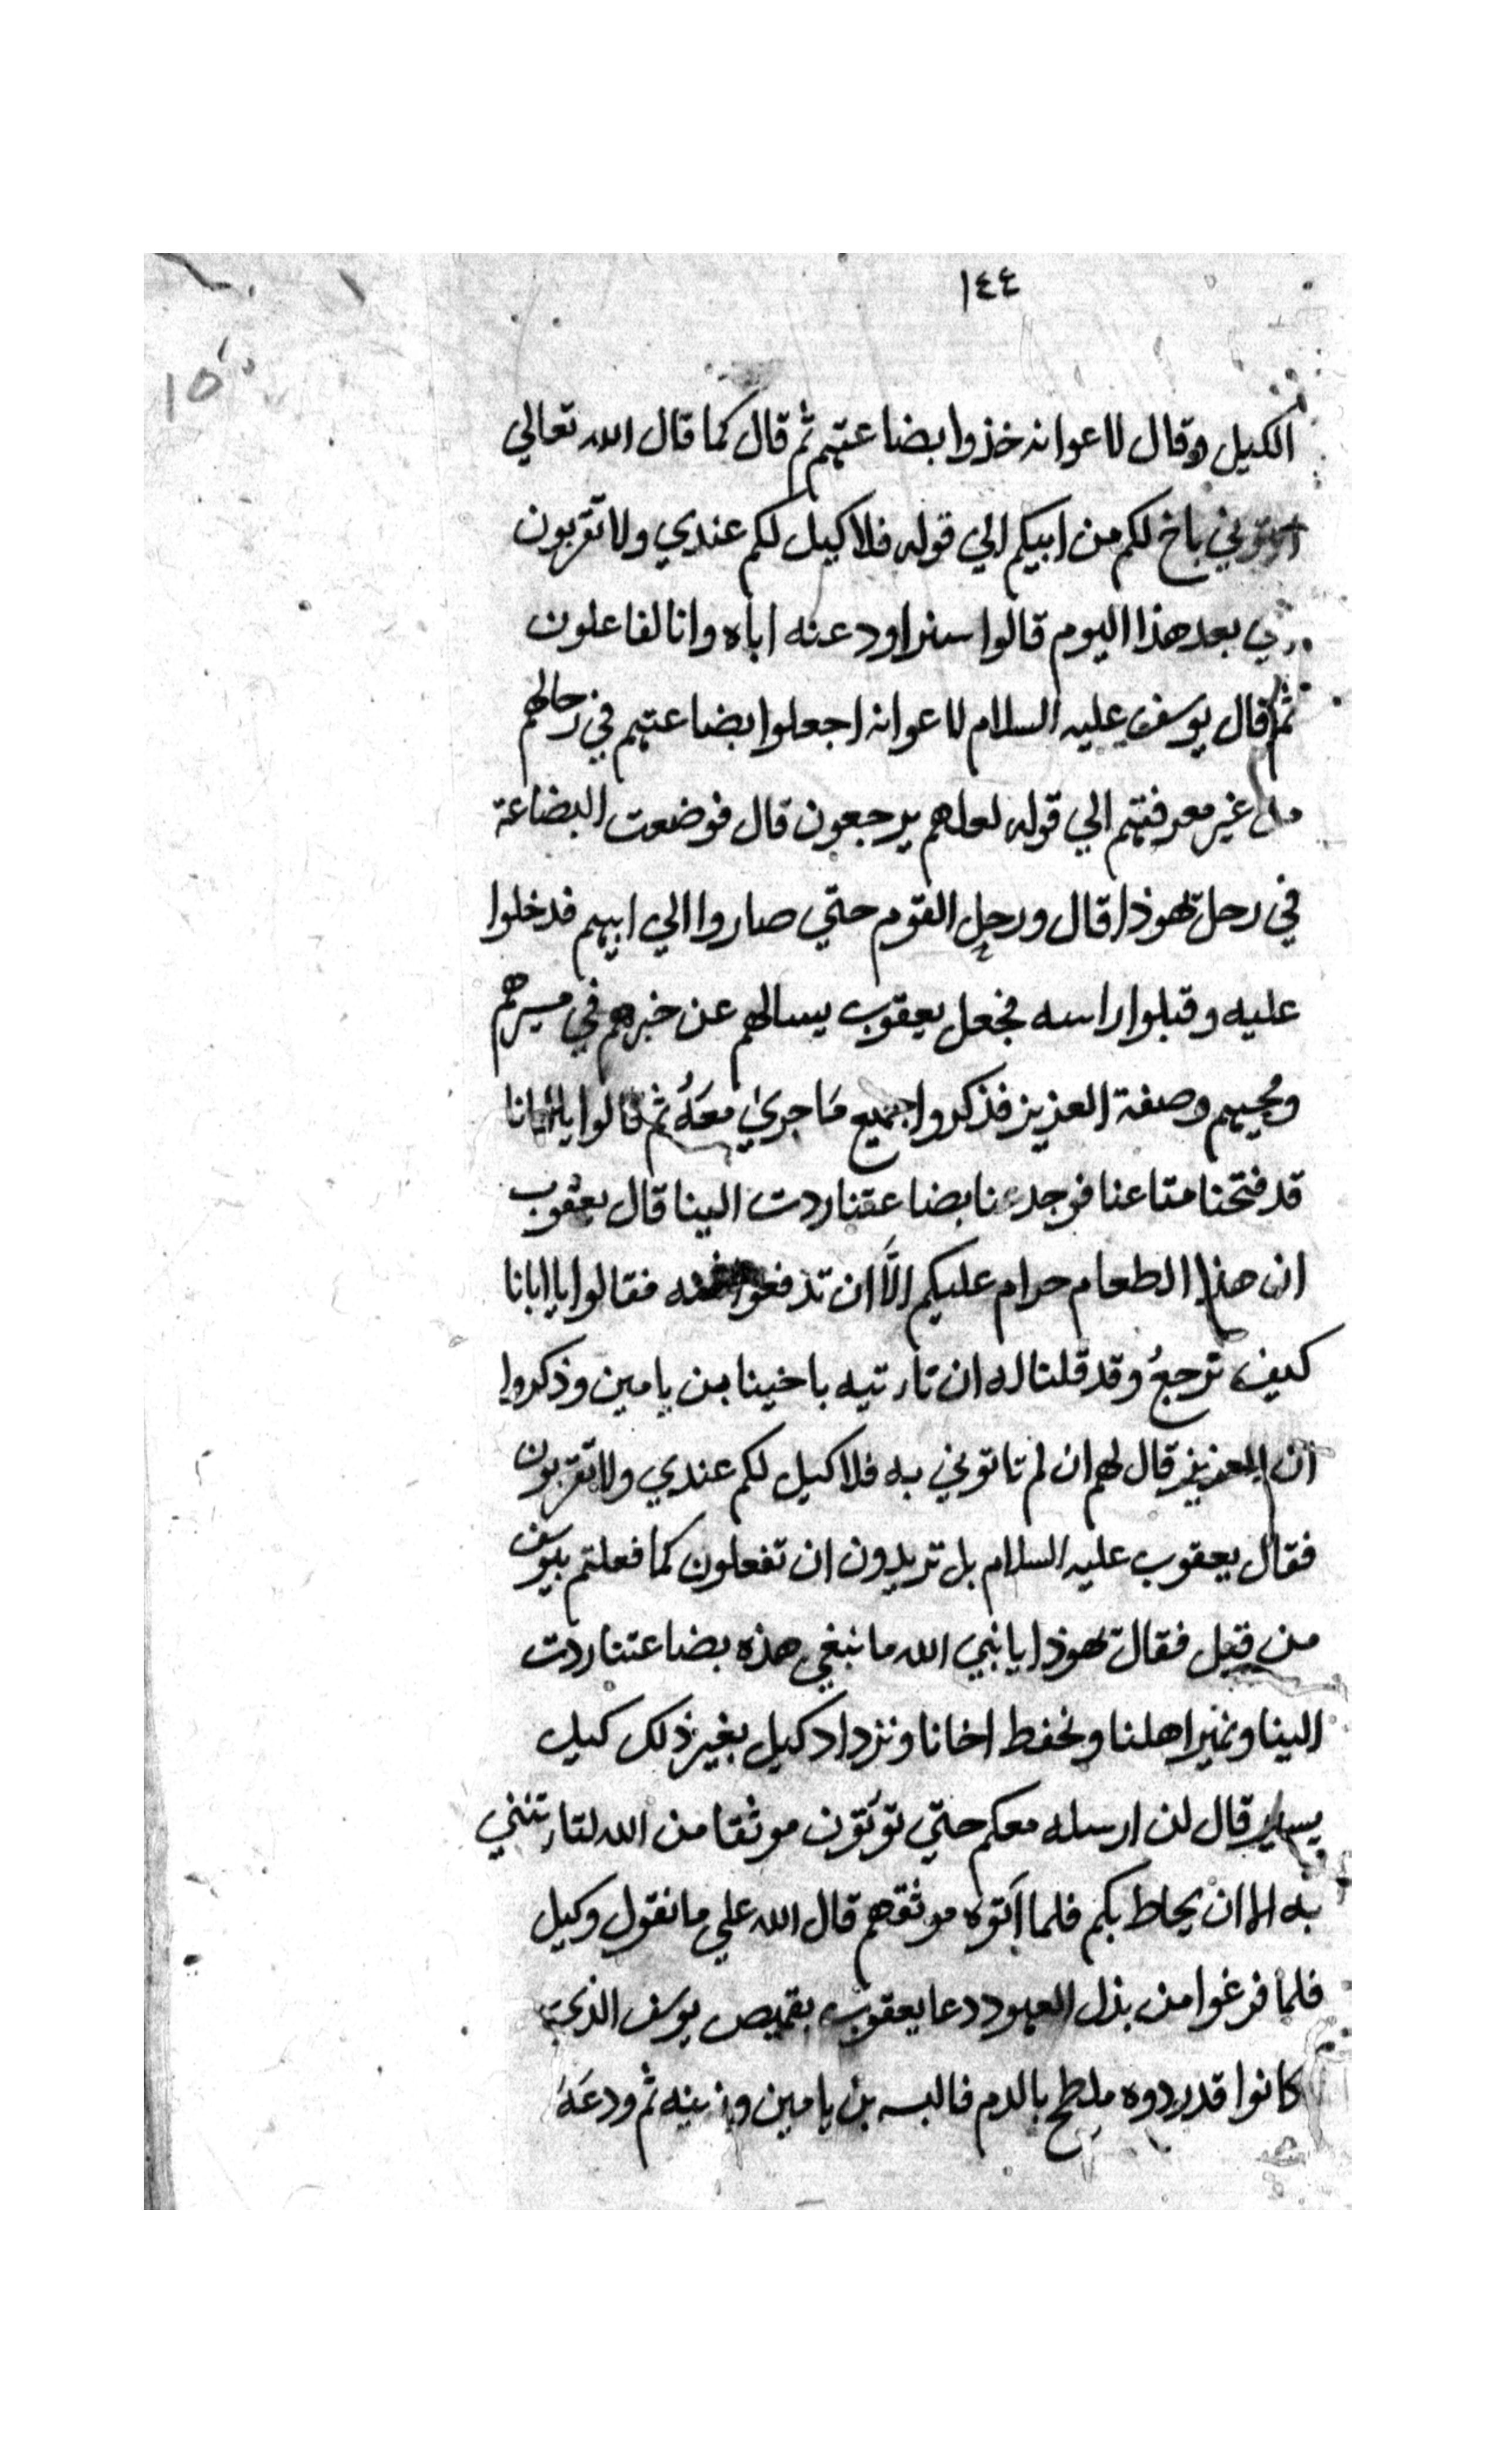 ١٤٤
١٥
الكيل وقال لاعوانه خذوا بضاعتهم ثم قال كما قال الله تعالي
ائتوني باخ لكم من ابيكم الي قوله فلا كيل لكم عندي ولا تقربون
بعد هذا اليوم قالوا سنراود عنه اباه وانا لفاعلون
ثم قال يوسف عليه السلام لاعوانه اجعلوا بضاعتهم في رحالهم
من غير معرفتهم الي قوله لعلهم يرجعون قال فوضعت البضاعة
في رحل يهوذا قال ورحل القوم حتي صاروا الي ابيهم فدخلوا
عليه وقبلوا راسه فجعل يعقوب يسالهم عن خبرهم في مسيرهم
وصفة العزيز فذكروا جميع مَا جريٰ معَهُ ثم قالوا يا ابانا
قد فتحنا متاعنا فوجدنا بضاعتنا ردت الينا قال يعقوب
ان هذا الطعام حرام عليكم الَّا ان تدفعوا فقالوا يا ابانا
كيف نرجعُ وقد قلنا له ان تاءتيه باخينا بن يامين وذكروا
ان العزيز قال لهم ان لم تاتوني به فلا كيل لكم عندي ولا تقربون
فقال يعقوب عليه السلام بل تريدون ان تفعلون كما فعلتم بيوسف
من قبل فقال يهوذا يا نبي الله ما نبغي هذه بضاعتنا ردت
الينا ونمير اهلنا ونحفط اخانا ونزداد كيل بغير ذلك كيل
يسير قال لن ارسله معكم حتي توتون موثقا من الله لتاءتنني
به الا ان يحاط بكم فلما آتوه موثقهم قال الله علي ما نقول وكيل
فلما فرغوا من بذل العهود دعا يعقوب بقميص يوسف الذي
كانوا قد ردوه ملطخ بالدم فالبسه بن يامين وزينه ثم ودعَهُ